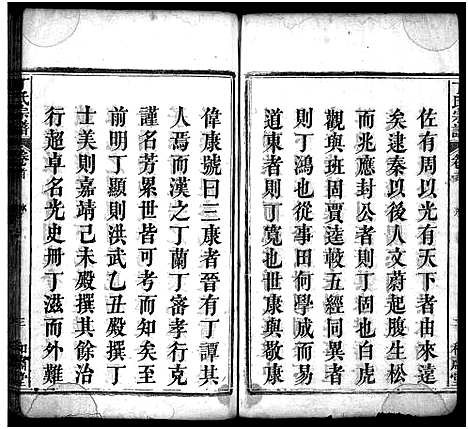 佐有周以有天下者由來遠
矣逮秦以後人文蔚起腹松
而兆應封公者丁固也在東
觀與班固賈逵較五經同異者
則丁鴻也從事田何學成而易
道東者丁寬也世康與康
偉康號曰三康者晉有丁潭其
人焉而漢之丁蘭丁審孝行克
謹名芳累世皆可考而知矣在
前明丁顯則洪武乙丑殿撰丁
士美則嘉靖己未殿撰其餘治
行超卓名光史冊丁滋而外難
丁氏宗譜
卷首